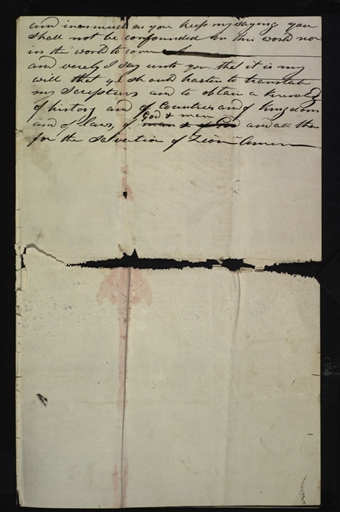 and inasmuch as you keep my sayings you
shall not be confounded in this world nor
in the world to come
and verely I say unto you that it is my
will that ye should hasten to translate
my Scriptures and to obtain a knowledg
of history and of Countries and of Kingdoms
and of laws, of God & man man & of God and all this
for the Salvation of Zion Amen